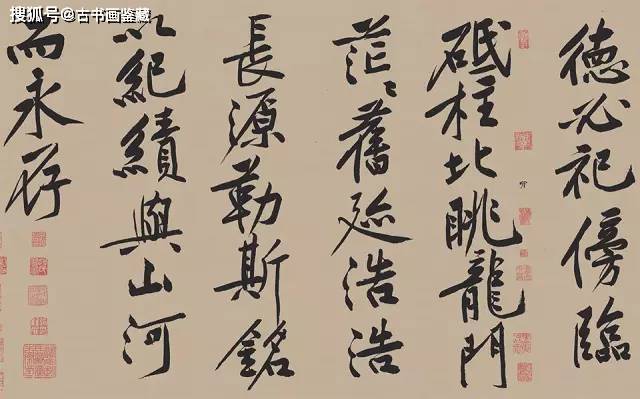 搜狐号@古书画鉴藏
德必祀傍臨
砥柱北眺龍門
茫〻舊迹浩浩
長源勒斯銘
以紀績與山河
而永存